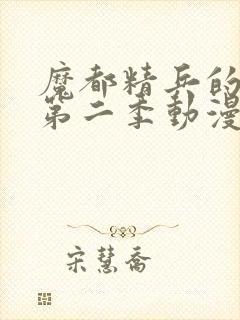 魔都精兵的
第二季動漫
宋慧喬